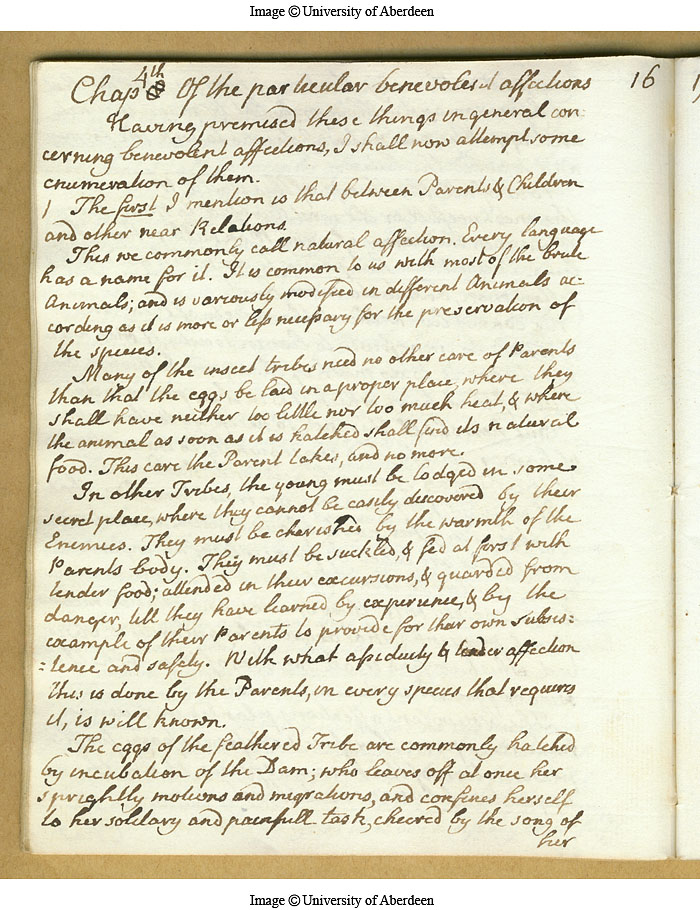 Image © University of Aberdeen
16
Chap 4th Of the particular benevolent affections
Having premised these things in general con:
cerning benevolent affections, I shall now attempt some
enumeration of them.
1 The first I mention is that between Parents & Children
and other near Relations.
This we commonly call natural affection. Every language
has a name for it. It is common to us with most of the brute
Animals; and is variously modified in different Animals ac:
cording as it is more or less necessary for the preservation of
the species.
Many of the insect tribes need no other care of Parents
than that the eggs be laid in a proper place, where they
shall have neither too little nor too much heat, & where
the animal as soon as it is hatched shall find its natural
food. This care the Parent takes, and no more.
In other Tribes, the young must be lodged in some
secret place, where they cannot be easily discovered by their
Enemies. They must be cherished by the warmth of the
Parents body. They must be suckled, & fed at first with
tender food; attended in their excursions, & guarded from
danger, till they have learned by experience, & by the
example of their Parents to provide for their own subsis:
:tence and safety. With what assiduity & tender affection
this is done by the Parents, in every species that requires
it, is well known.
The eggs of the feathered Tribe are commonly hatched
by incubation of the Dam; who leaves off at once her
sprightly motions and migrations, and confines herself
to her solitary and painfull task, cheered by the song of
her
Image © University of Aberdeen